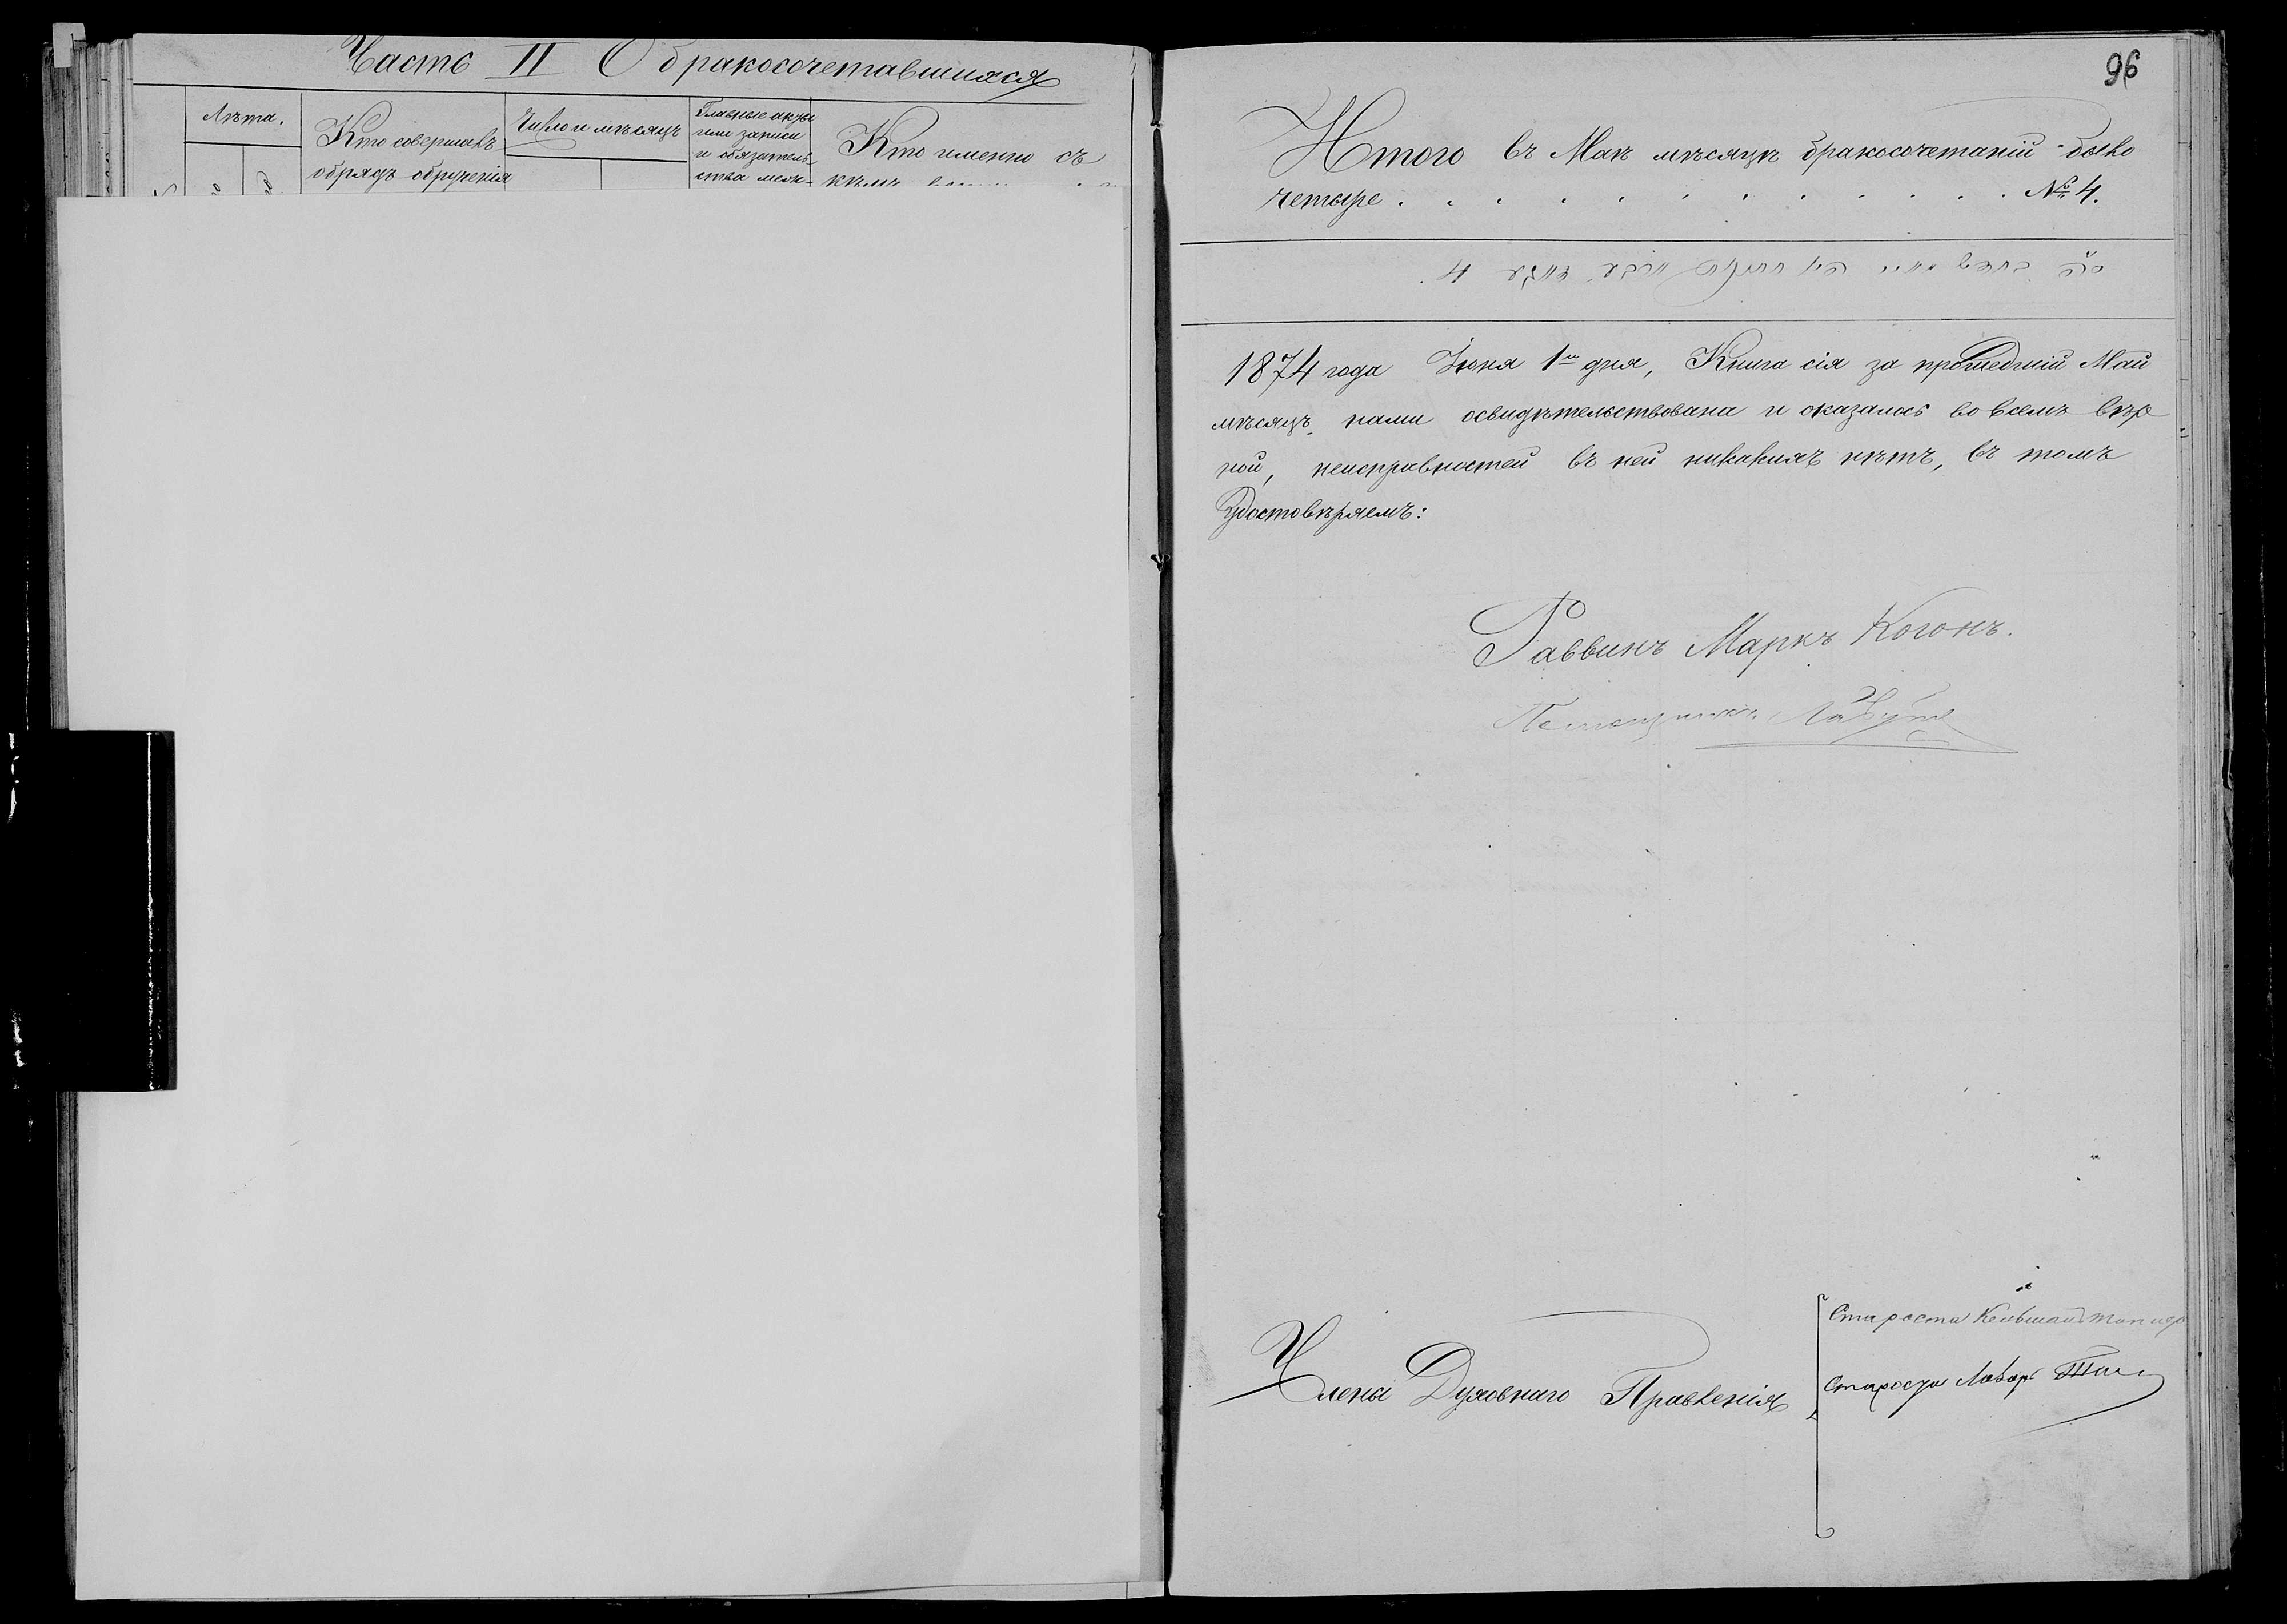 Часть II О бракосочетавшихся
Лѣта.
Кто совершалъ
обрядъ обрученія
Число и мѣсяцъ
Главные акты
или записи
и обязатель-
ства меж-
Кто именно съ
кѣмъ
96
Итого въ Маѣ мѣсяцѣ бракосочетаній было
четыре . . . . . . . . . . . № 4.
4.
1874 года Іюня 1го дня, Книга сія за прошедшій Май
мѣсяцъ нами освидѣтельствована и оказалась во всемъ вѣр
ной, неисправностей въ ней никакихъ нѣтъ, въ томъ
Удостовѣряемъ:
Раввинъ Маркъ Когонъ.
Члены Духовнаго Правленія
Староста
Староста Лазарь